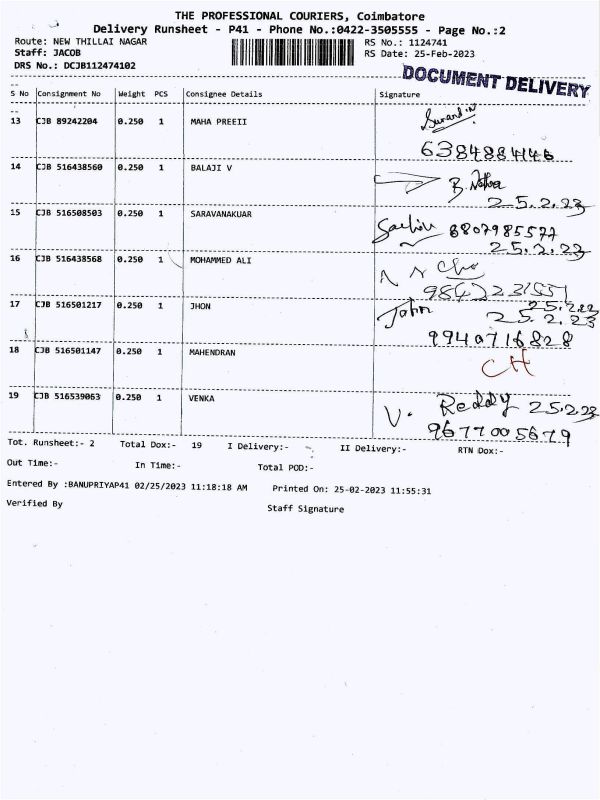 THE PROFESSIONAL COURIERS, Coimbatore
Delivery Runsheet - P41 - Phone No.:0422-3505555 - Page No.:2
Route: NEW THILLAI NAGAR RS No.: 1124741
Staff: JACOB RS Date: 25-Feb-2023
DRS No.: DCJB112474102
DOCUMENT DELIVERY
S No Consignment No Weight PCS Consignee Details Signature
13 CJB 89242204 0.250 1 MAHA PREEII
6384884146
14 CJB 516438560 0.250 1 BALAJI V
25.2.23
15 CJB 516508503 0.250 1 SARAVANAKUAR
6807985577
25.2.23
16 CJB 516438568 0.250 1 MOHAMMED ALI
25.2.22
17 CJB 516501217 0.250 1 JHON John 25.2.23
9940716828
18 CJB 516501147 0.250 1 MAHENDRAN
CH
19 CJB 516539063 0.250 1 VENKA V. Reddy 25.2.23
9677005679
Tot. Runsheet:- 2 Total Dox:- 19 I Delivery:- II Delivery:- RTN Dox:-
Out Time:- In Time:- Total POD:-
Entered By :BANUPRIYAP41 02/25/2023 11:18:18 AM Printed On: 25-02-2023 11:55:31
Verified By Staff Signature